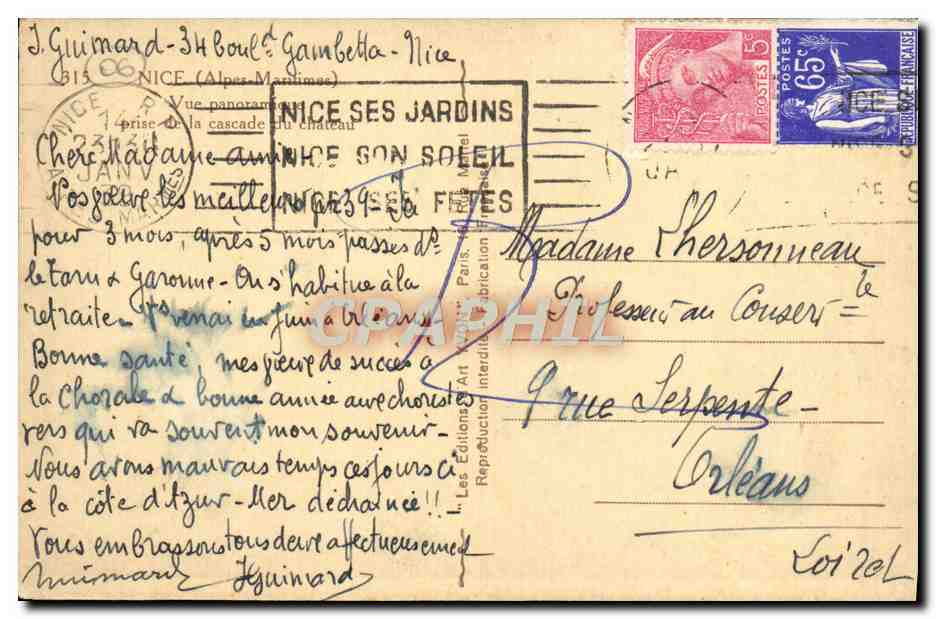 J. Guimard - 34 boul.d Gambetta - Nice
315 06 NICE (Alpes-Maritimes)
Vue panoramique
prise de la cascade du château
NICE R.P
14
JANV
NICE SES JARDINS
NICE SON SOLEIL
NICE SES FÊTES
POSTES 5c
POSTES 65c
REPUBLIQUE FRANÇAISE
Chère Madame amie
les meilleurs pr 39 -
pour 3 mois, après 5 mois passés ds
le Tarn & Garonne - On s'habitue à la
retraite - en Juin à Orléans -
Bonne santé, de succès à
la Chorale & bonne année aux choristes
vers qui va souvent mon souvenir -
Nous avons mauvais temps ces jours ci
à la côte d'Azur - Mer déchaînée !! -
Vous embrassons tous deux affectueusement
Guimard JGuimard
Les Editions d'Art "YVON" Paris.
Reproduction interdite Fabrication Française
Madame Lhersonneau
Professeur au Conserv.re
9 rue Serpente -
Orléans
Loiret
CPAPHIL